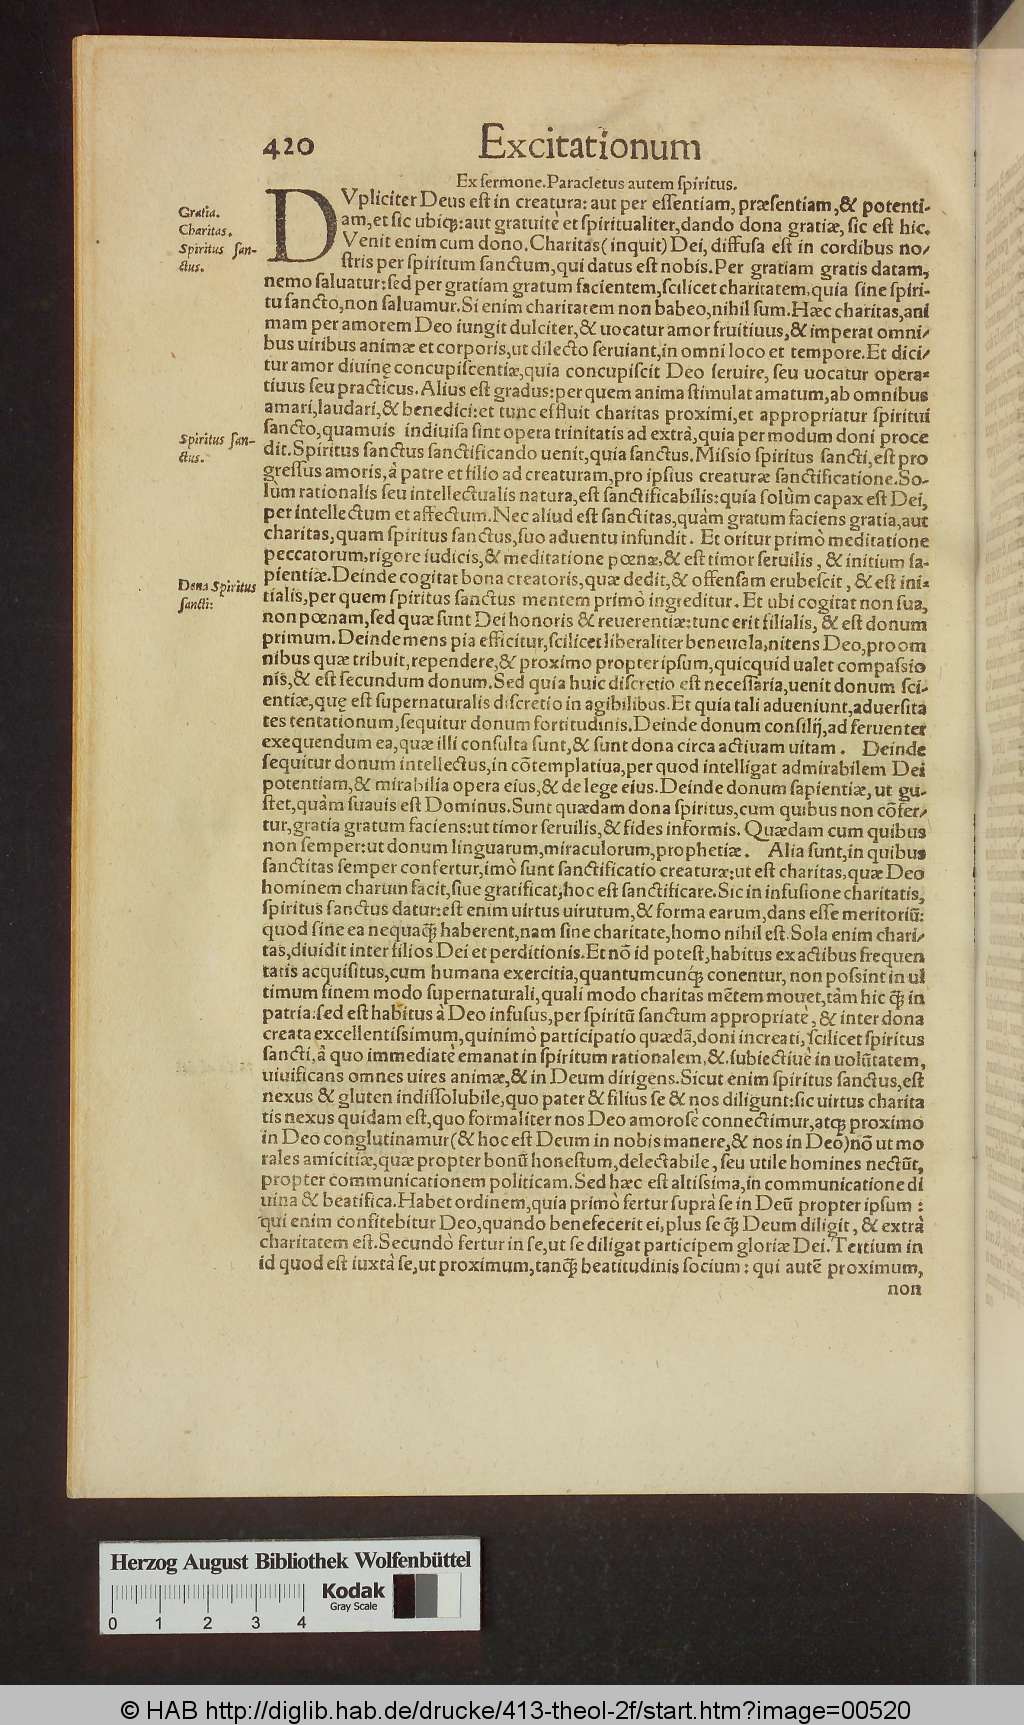 420 Excitationum
Ex sermone. Paracletus autem spiritus.
Gratia.
Charitas.
Spiritus san-
ctus.
DVpliciter Deus est in creatura: aut per essentiam, præsentiam, & potenti-
am, et sic ubiq;: aut gratuitè et spiritualiter, dando dona gratiæ, sic est hic.
Venit enim cum dono. Charitas (inquit) Dei, diffusa est in cordibus no/
stris per spiritum sanctum, qui datus est nobis. Per gratiam gratis datam,
nemo saluatur: sed per gratiam gratum facientem, scilicet charitatem, quia sine spiri-
tu sancto, non saluamur. Si enim charitatem non babeo, nihil sum. Hæc charitas, ani
mam per amorem Deo iungit dulciter, & uocatur amor fruitiuus, & imperat omni/
bus uiribus animæ et corporis, ut dilecto seruiant, in omni loco et tempore. Et dici/
tur amor diuinę concupiscentiæ, quia concupiscit Deo seruire, seu uocatur opera-
tiuus seu practicus. Alius est gradus: per quem anima stimulat amatum, ab omnibus
amari, laudari, & benedici: et tunc effluit charitas proximi, et appropriatur spiritui
sancto, quamuis indiuisa sint opera trinitatis ad extrà, quia per modum doni proce
Spiritus san-
ctus.
dit. Spiritus sanctus sanctificando uenit, quia sanctus. Missio spiritus sancti, est pro
gressus amoris, à patre et filio ad creaturam, pro ipsius creaturæ sanctificatione. So-
lùm rationalis seu intellectualis natura, est sanctificabilis: quia solùm capax est Dei,
per intellectum et affectum. Nec aliud est sanctitas, quàm gratum faciens gratia, aut
charitas, quam spiritus sanctus, suo aduentu infundit. Et oritur primò meditatione
peccatorum, rigore iudicis, & meditatione pœnæ, & est timor seruilis, & initium sa-
pientiæ. Deinde cogitat bona creatoris, quæ dedit, & offensam erubescit, & est ini-
Dona Spiritus
sancti:
tialis, per quem spiritus sanctus mentem primò ingreditur. Et ubi cogitat non sua,
non pœnam, sed quæ sunt Dei honoris & reuerentiæ: tunc erit filialis, & est donum
primum. Deinde mens pia efficitur, scilicet liberaliter beneuola, nitens Deo, pro om
nibus quæ tribuit, rependere, & proximo propter ipsum, quicquid ualet compassio
nis, & est secundum donum. Sed quia huic discretio est necessaria, uenit donum sci-
entiæ, quę est supernaturalis discretio in agibilibus. Et quia tali adueniunt, aduersita
tes tentationum, sequitur donum fortitudinis. Deinde donum consilij, ad feruenter
exequendum ea, quæ illi consulta sunt, & sunt dona circa actiuam uitam. Deinde
sequitur donum intellectus, in cõtemplatiua, per quod intelligat admirabilem Dei
potentiam, & mirabilia opera eius, & de lege eius. Deinde donum sapientiæ, ut gu-
stet, quàm suauis est Dominus. Sunt quædam dona spiritus, cum quibus non cõfer/
tur, gratia gratum faciens: ut timor seruilis, & fides informis. Quædam cum quibus
non semper: ut donum linguarum, miraculorum, prophetiæ. Alia sunt, in quibus
sanctitas semper confertur, imò sunt sanctificatio creaturæ: ut est charitas, quæ Deo
hominem charum facit, siue gratificat, hoc est sanctificare. Sic in infusione charitatis,
spiritus sanctus datur: est enim uirtus uirutum, & forma earum, dans esse meritoriũ:
quod sine ea nequaq̃; haberent, nam sine charitate, homo nihil est. Sola enim chari/
tas, diuidit inter filios Dei et perditionis. Et nõ id potest, habitus ex actibus frequen
tatis acquisitus, cum humana exercitia, quantumcunq; conentur, non possint in ul
timum finem modo supernaturali, quali modo charitas mẽtem mouet, tàm hic q̃; in
patria: sed est habitus à Deo infusus, per spiritũ sanctum appropriatè, & inter dona
creata excellentissimum, quinimò participatio quædã, doni increati, scilicet spiritus
sancti, à quo immediatè emanat in spiritum rationalem, &. subiectiuè in uolũtatem,
uiuificans omnes uires animæ, & in Deum dirigens. Sicut enim spiritus sanctus, est
nexus & gluten indissolubile, quo pater & filius se & nos diligunt: sic uirtus charita
tis nexus quidam est, quo formaliter nos Deo amorosè connectimur, atq; proximo
in Deo conglutinamur (& hoc est Deum in nobis manere, & nos in Deo) nõ ut mo
rales amicitiæ, quæ propter bonũ honestum, delectabile, seu utile homines nectũt,
propter communicationem politicam. Sed hæc est altissima, in communicatione di
uina & beatifica. Habet ordinem, quia primò fertur suprà se in Deũ propter ipsum:
qui enim confitebitur Deo, quando benefecerit ei, plus se q̃; Deum diligit, & extrà
charitatem est. Secundò fertur in se, ut se diligat participem gloriæ Dei. Tertium in
id quod est iuxtà se, ut proximum, tanq̃; beatitudinis socium: qui autẽ proximum,
non
Herzog August Bibliothek Wolfenbüttel
Kodak
Gray Scale
0 1 2 3 4
© HAB http://diglib.hab.de/drucke/413-theol-2f/start.htm?image=00520